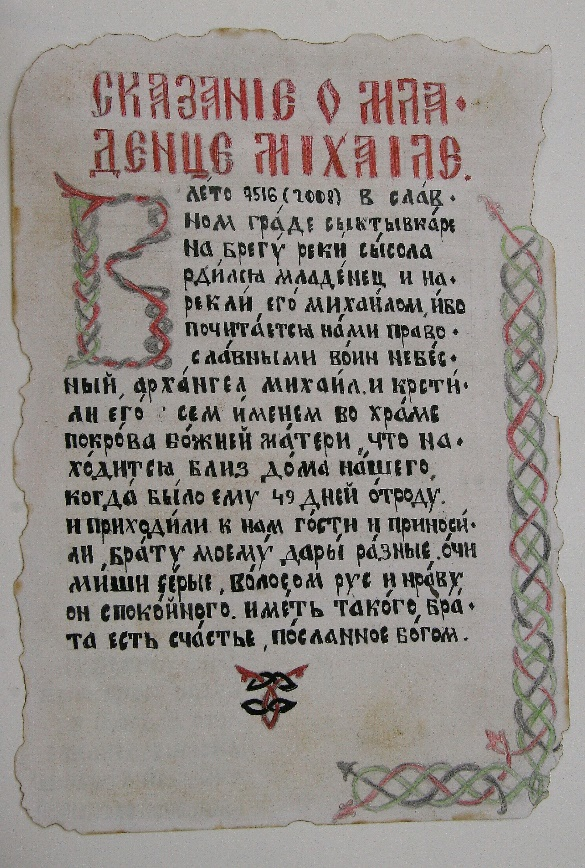 СКАЗАНІЕ О МЛА-
ДЕНЦЕ МІХАІЛЕ.
В ЛЕТО 7516 (2008) В СЛАВ-
НОМ ГРАДЕ СЫКТЫВКАРЕ
НА БРЕГУ РЕКИ СЫСОЛА
РОДИЛСЯ МЛАДЕНЕЦ И НА-
РЕКЛИ ЕГО МИХАИЛОМ, ИБО
ПОЧИТАЕТСЯ НАМИ ПРАВО-
СЛАВНЫМИ ВОИН НЕБЕС-
НЫЙ, АРХАНГЕЛ МИХАИЛ. И КРЕСТИ-
ЛИ ЕГО СЕМ ИМЕНЕМ ВО ХРАМЕ
ПОКРОВА БОЖИЕЙ МАТЕРИ, ЧТО НА-
ХОДИТСЯ БЛИЗ ДОМА НАШЕГО,
КОГДА БЫЛО ЕМУ 49 ДНЕЙ ОТРОДУ.
И ПРИХОДИЛИ К НАМ ГОСТИ И ПРИНОСИ-
ЛИ БРАТУ МОЕМУ ДАРЫ РАЗНЫЕ. ОЧИ
МИШИ СЕРЫЕ, ВОЛОСОМ РУС И НРАВУ
ОН СПОКОЙНОГО. ИМЕТЬ ТАКОГО БРА-
ТА ЕСТЬ СЧАСТЬЕ, ПОСЛАННОЕ БОГОМ.